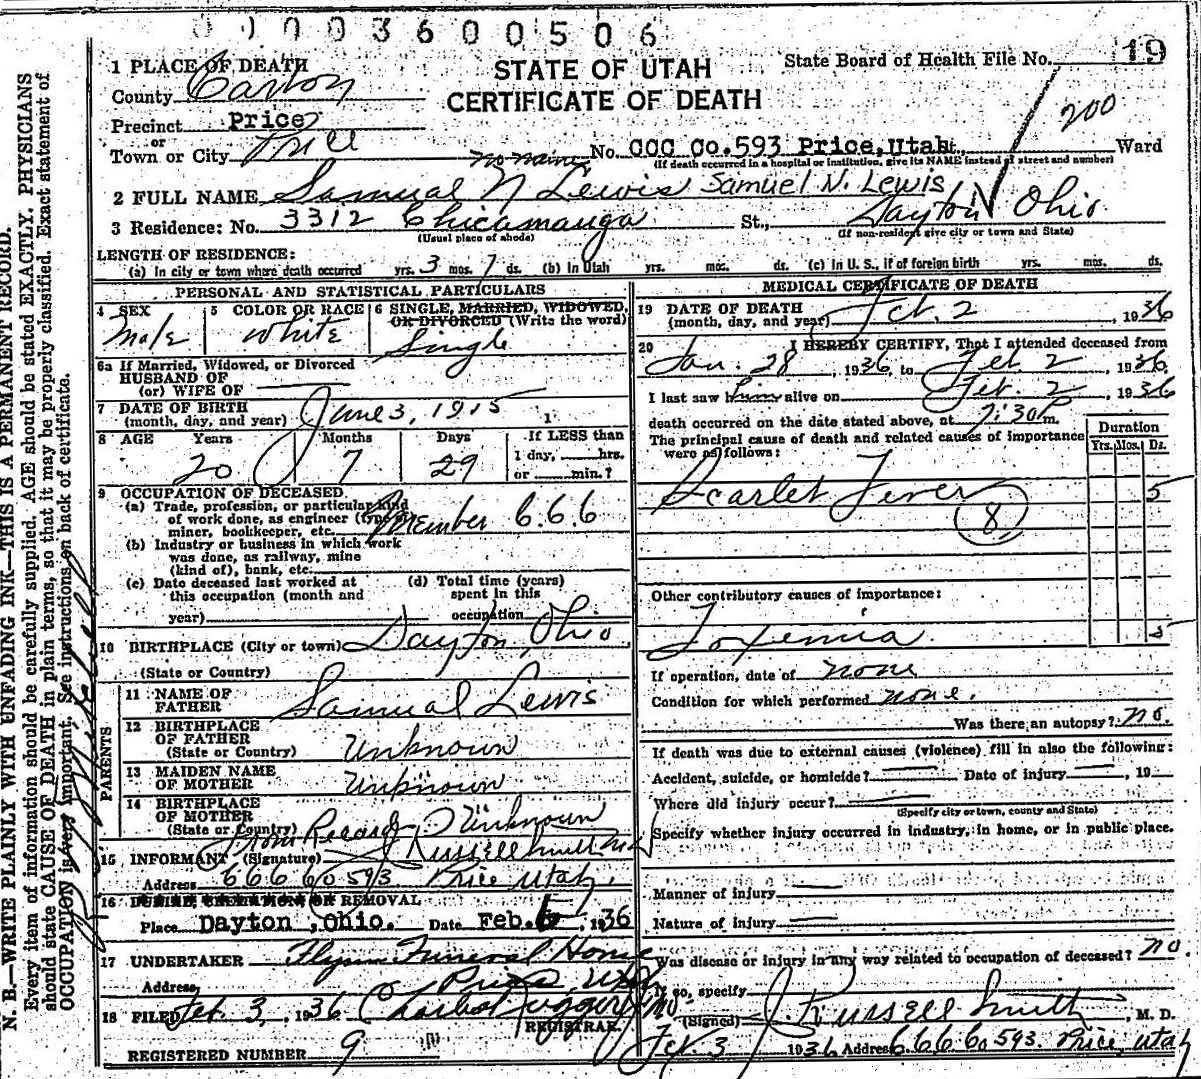 0003600506
19
1 PLACE OF DEATH
STATE OF UTAH
State Board of Health File No.
County Carbon
CERTIFICATE OF DEATH
200
Precinct Price
or
Town or City Price
no name No. CCC Co. 593 Price, Utah St., Ward
(If death occurred in a hospital or institution, give its NAME instead of street and number)
2 FULL NAME Samual N Lewis Samuel N. Lewis
3 Residence: No. 3312 Chicamauga St., Dayton Ohio
(Usual place of abode) (If non-resident give city or town and State)
LENGTH OF RESIDENCE:
(a) In city or town where death occurred yrs. 3 mos. 7 ds. (b) In Utah yrs. mos. ds. (c) In U. S., if of foreign birth yrs. mos. ds.
PERSONAL AND STATISTICAL PARTICULARS
4 SEX 5 COLOR OR RACE 6 SINGLE, MARRIED, WIDOWED,
OR DIVORCED (Write the word)
Male White Single
6a If Married, Widowed, or Divorced
HUSBAND OF
(or) WIFE OF
7 DATE OF BIRTH
(month, day, and year) June 3, 1915
8 AGE Years Months Days If LESS than
1 day, hrs.
20 7 29 or min.?
9 OCCUPATION OF DECEASED
(a) Trade, profession, or particular kind
of work done, as engineer (type of
miner, bookkeeper, etc. Member C.C.C
(b) Industry or business in which work
was done, as railway, mine
(kind of), bank, etc.
(c) Date deceased last worked at (d) Total time (years)
this occupation (month and spent in this
year) occupation
10 BIRTHPLACE (City or town) Dayton, Ohio
(State or Country)
PARENTS
11 NAME OF
FATHER Samual Lewis
12 BIRTHPLACE
OF FATHER
(State or Country) Unknown
13 MAIDEN NAME
OF MOTHER Unknown
14 BIRTHPLACE
OF MOTHER
(State or Country) Unknown
From Record
15 INFORMANT (Signature) J Russell Smith M.D.
Address CCC Co 593 Price Utah.
16 BURIAL CREMATION OR REMOVAL
Place Dayton, Ohio. Date Feb. 6, 1936
17 UNDERTAKER Flynn Funeral Home
Address Price, Utah
18 FILED Feb. 3, 1936
REGISTRAR
REGISTERED NUMBER 9
MEDICAL CERTIFICATE OF DEATH
19 DATE OF DEATH
(month, day, and year) Feb. 2, 1936
20 I HEREBY CERTIFY, That I attended deceased from
Jan. 28, 1936, to Feb 2, 1936.
I last saw him alive on Feb. 2, 1936
death occurred on the date stated above, at 7:30 P m.
The principal cause of death and related causes of importance
were as follows:
Duration
Yrs. Mos. Ds.
Scarlet Fever 5
8
Other contributory causes of importance:
Toxemia. 5
If operation, date of none
Condition for which performed none.
Was there an autopsy? no.
If death was due to external causes (violence) fill in also the following:
Accident, suicide, or homicide? Date of injury , 19
Where did injury occur?
(Specify city or town, county and State)
Specify whether injury occurred in industry, in home, or in public place.
Manner of injury
Nature of injury
Was disease or injury in any way related to occupation of deceased? no.
If so, specify no.
(Signed) J. Russell Smith, M. D.
Feb. 3 1936 Address CCC Co 593. Price, Utah
N. B.—WRITE PLAINLY WITH UNFADING INK—THIS IS A PERMANENT RECORD.
Every item of information should be carefully supplied. AGE should be stated EXACTLY. PHYSICIANS
should state CAUSE OF DEATH in plain terms, so that it may be properly classified. Exact statement of
OCCUPATION is very important. See instructions on back of certificate.